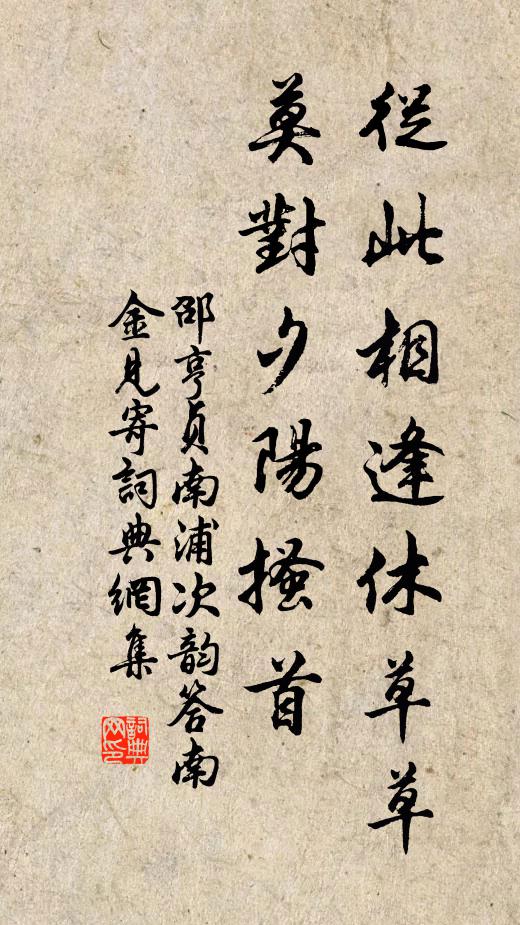 從此相逢休草草
莫對夕陽搔首
邵亨貞南浦次韵答南
金見寄詞典網集
詞典網印